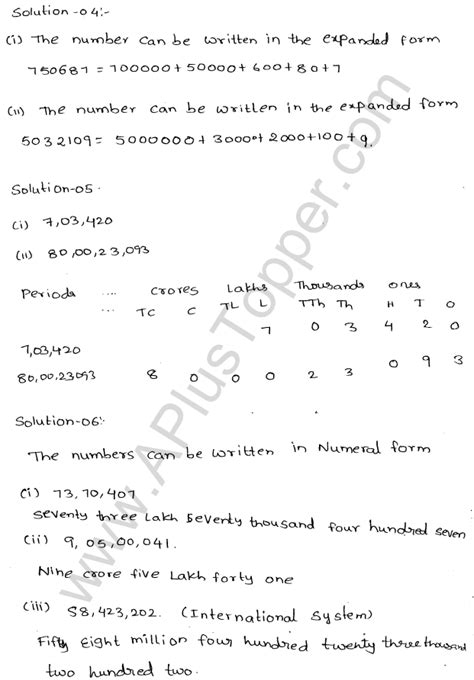 Solution-04:-
(i) The number can be written in the expanded form
750687 = 700000+50000+600+80+7
(ii) The number can be written in the expanded form
5032109 = 5000000+30000+2000+100+9.
Solution-05.
(i) 7,03,420
(ii) 80,00,23,093
Periods .... Crores Lakhs Thousands Ones
... TC C TL L TTh Th H T O
7 0 3 4 2 0
7,03,420
80,00,23093 8 0 0 0 2 3 0 9 3
Solution-06:
The numbers can be written in Numeral form
(i) 73,70,407
Seventy three Lakh Seventy thousand four hundred seven
(ii) 9,05,00,041.
Nine crore five Lakh forty one
(iii) 58,423,202. (International System)
Fifty Eight million four hundred twenty three thousand
two hundred two.
www.APlusTopper.com